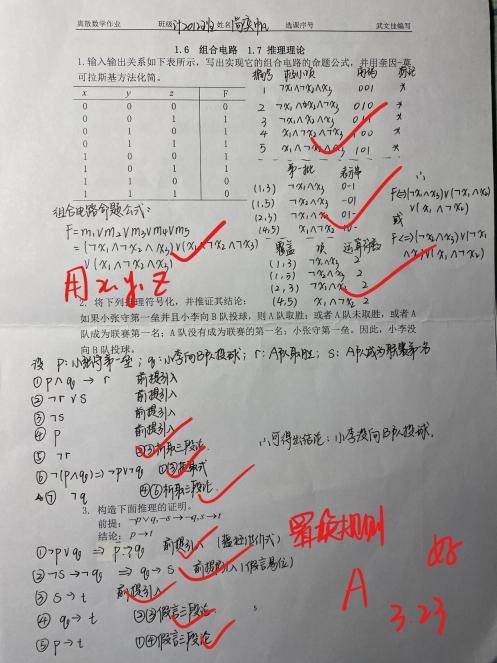 离散数学作业 班级 计2012班 姓名 选课序号 武文佳编写
1.6 组合电路 1.7 推理理论
1.输入输出关系如下表所示，写出实现它的组合电路的命题公式，并用奎因-莫
可拉斯基方法化简。
x y z F
0 0 0 0
0 0 1 1
0 1 0 1
0 1 1 1
1 0 0 1
1 0 1 1
1 1 0 0
1 1 1 0
编号 极小项 角码 标记
1 ¬x₁∧¬x₂∧x₃ 001 *
2 ¬x₁∧x₂∧¬x₃ 010 *
3 ¬x₁∧x₂∧x₃ 011 *
4 x₁∧¬x₂∧¬x₃ 100 *
5 x₁∧¬x₂∧x₃ 101 *
第一批 表示串
(1,3) ¬x₁∧x₃ 0-1
(1,5) ¬x₂∧x₃ -01
(2,3) ¬x₁∧x₂ 01-
(4,5) x₁∧¬x₂ 10-
覆盖 项 运算符数
(1,3) ¬x₁∧x₃ 2
(1,5) ¬x₂∧x₃ 2
(2,3) ¬x₁∧x₂ 2
(4,5) x₁∧¬x₂ 2
∴
F⇔(¬x₁∧x₃)∨(¬x₁∧x₂)
∨(x₁∧¬x₂)
或
F⇔(¬x₂∧x₃)∨(¬x₁
∧x₂)∨(x₁∧¬x₂)
组合电路命题公式：
F=m₁∨m₂∨m₃∨m₄∨m₅
用x,y,z
2. 将下列推理符号化，并推证其结论：
如果小张守第一垒并且小李向B队投球，则A队取胜；或者A队未取胜，或者A
队成为联赛第一名；A队没有成为联赛的第一名；小张守第一垒。因此，小李没
向B队投球。
设 p:小张守第一垒；q:小李向B队投球；r:A队取胜；s:A队成为联赛第一名
① p∧q → r 前提引入
② ¬r∨s 前提引入
③ ¬s 前提引入
④ p 前提引入
⑤ ¬r ②③析取三段论
⑥ ¬(p∧q)⇔¬p∨¬q ①⑤拒取式
⑦ ¬q ④⑥析取三段论
∴可得出结论：小李没向B队投球.
3. 构造下面推理的证明。
前提：¬p∨q,¬s→¬q,s→t
结论：p→t
① ¬p∨q ⇒ p→q 前提引入
② ¬s→¬q ⇒ q→s 前提引入(假言易位)
③ s→t 前提引入
④ q→t ②③假言三段论
⑤ p→t ①④假言三段论
置换规则
好
A
3.23